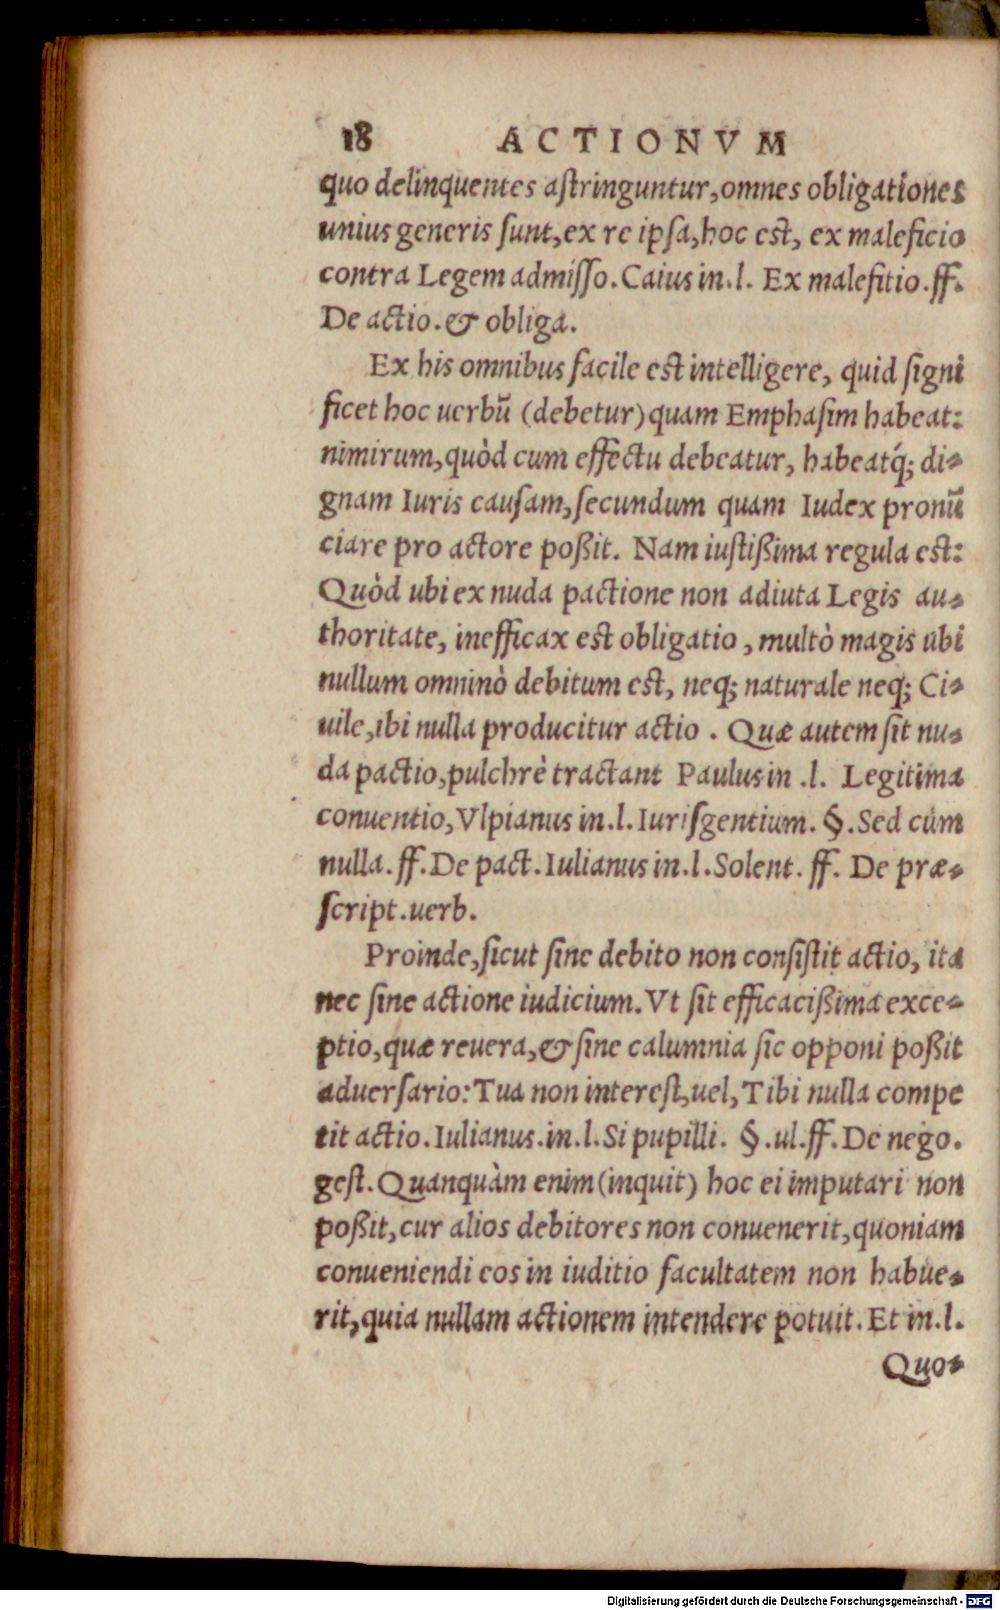 18 ACTIONVM
quo delinquentes aſtringuntur, omnes obligationes
unius generis ſunt, ex re ipſa, hoc eſt, ex maleficio
contra Legem admiſſo. Caius in .l. Ex malefitio. ff.
De actio. & obliga.
Ex his omnibus facile eſt intelligere, quid ſigni
ficet hoc uerbũ (debetur) quam Emphaſim habeat:
nimirum, quòd cum effectu debeatur, habeatq́; di-
gnam Iuris cauſam, ſecundum quam Iudex pronũ
ciare pro actore poßit. Nam iuſtißima regula eſt:
Quòd ubi ex nuda pactione non adiuta Legis au-
thoritate, inefficax eſt obligatio, multò magis ubi
nullum omninò debitum eſt, neq; naturale neq; Ci-
uile, ibi nulla producitur actio. Quæ autem ſit nu-
da pactio, pulchrè tractant Paulus in .l. Legitima
conuentio, Vlpianus in .l. Iuriſgentium. §. Sed cùm
nulla. ff. De pact. Iulianus in .l. Solent. ff. De præ-
ſcript. uerb.
Proinde, ſicut ſine debito non conſiſtit actio, ita
nec ſine actione iudicium. Vt ſit efficacißima exce-
ptio, quæ reuera, & ſine calumnia ſic opponi poßit
aduerſario: Tua non intereſt, uel, Tibi nulla compe
tit actio. Iulianus .in .l. Si pupilli. §. ul. ff. De nego.
geſt. Quanquàm enim (inquit) hoc ei imputari non
poßit, cur alios debitores non conuenerit, quoniam
conueniendi eos in iuditio facultatem non habue-
rit, quia nullam actionem intendere potuit. Et in .l.
Quo-
Digitalisierung gefördert durch die Deutsche Forschungsgemeinschaft - DFG